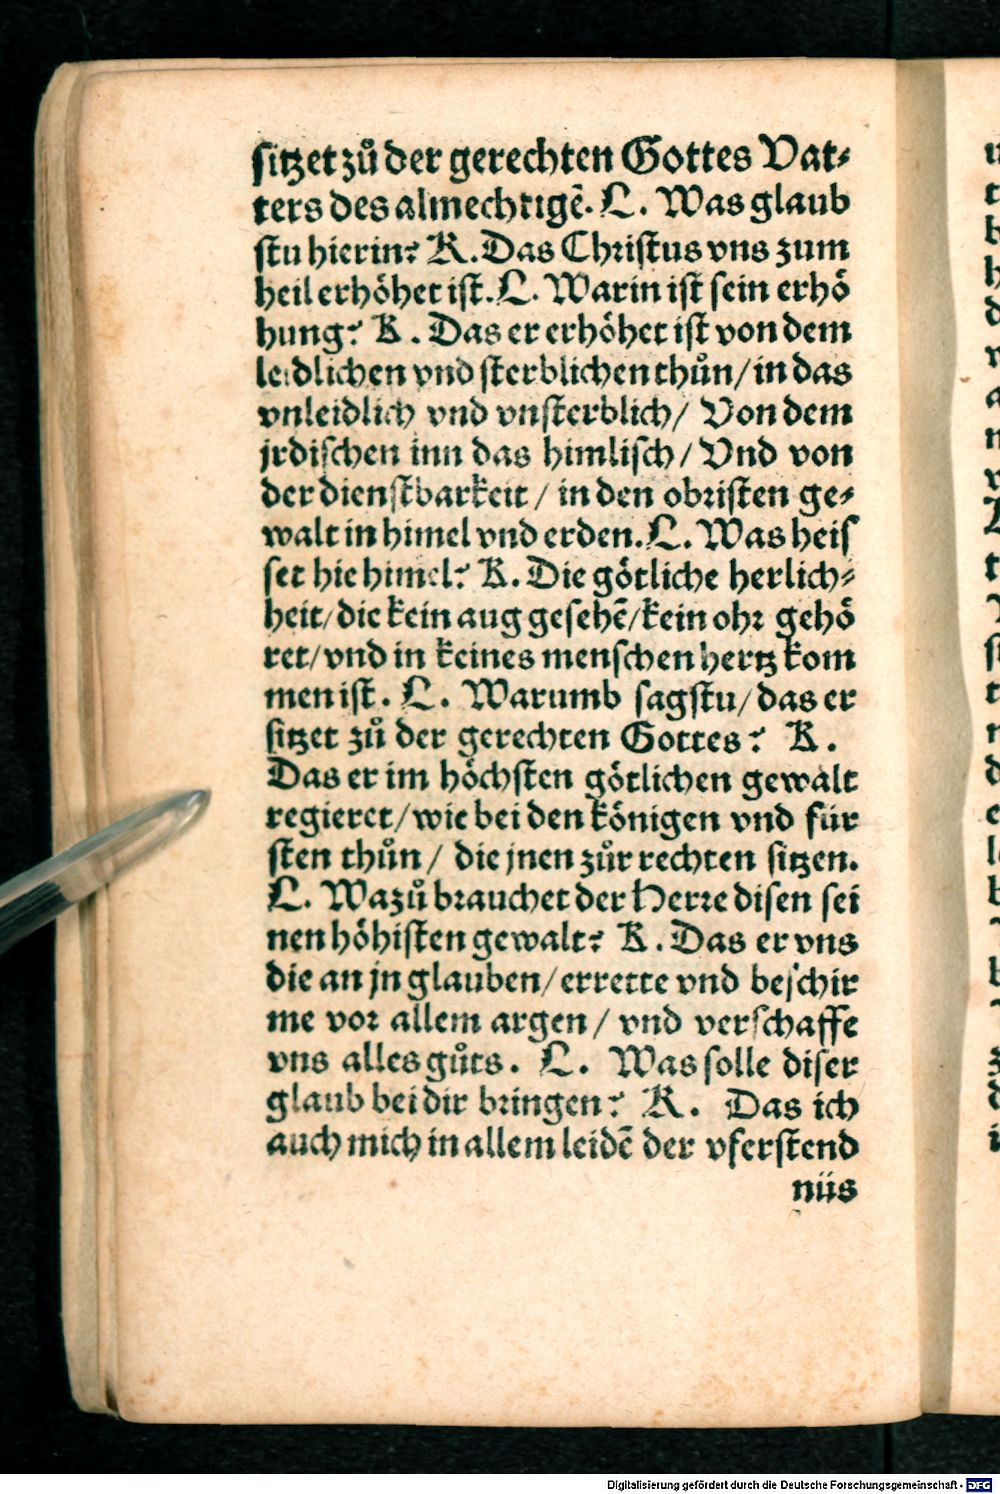 sitzet zů der gerechten Gottes Vat⸗
ters des almechtigē. L. Was glaub
stu hierin? K. Das Christus vns zum
heil erhöhet ist. L. Warin ist sein erhö
hung? K. Das er erhöhet ist von dem
leidlichen vnd sterblichen thůn/ in das
vnleidlich vnd vnsterblich/ Von dem
jrdischen inn das himlisch/ Vnd von
der dienstbarkeit/ in den obristen ge⸗
walt in himel vnd erden. L. Was heis
set hie himel? K. Die götliche herlich⸗
heit/ die kein aug gesehē/ kein ohr gehö
ret/ vnd in keines menschen hertz kom
men ist. L. Warumb sagstu/ das er
sitzet zů der gerechten Gottes? K.
Das er im höchsten götlichen gewalt
regieret/ wie bei den königen vnd für
sten thůn/ die jnen zůr rechten sitzen.
L. Wazů brauchet der Herre disen sei
nen höhisten gewalt? K. Das er vns
die an jn glauben/ errette vnd beschir
me vor allem argen/ vnd verschaffe
vns alles gůts. L. Was solle diser
glaub bei dir bringen? K. Das ich
auch mich in allem leidē der vferstend
nüs
Digitalisierung gefördert durch die Deutsche Forschungsgemeinschaft - DFG